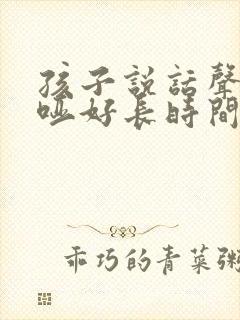 孩子説話聲
啞好長時間
乖巧的青菜粥